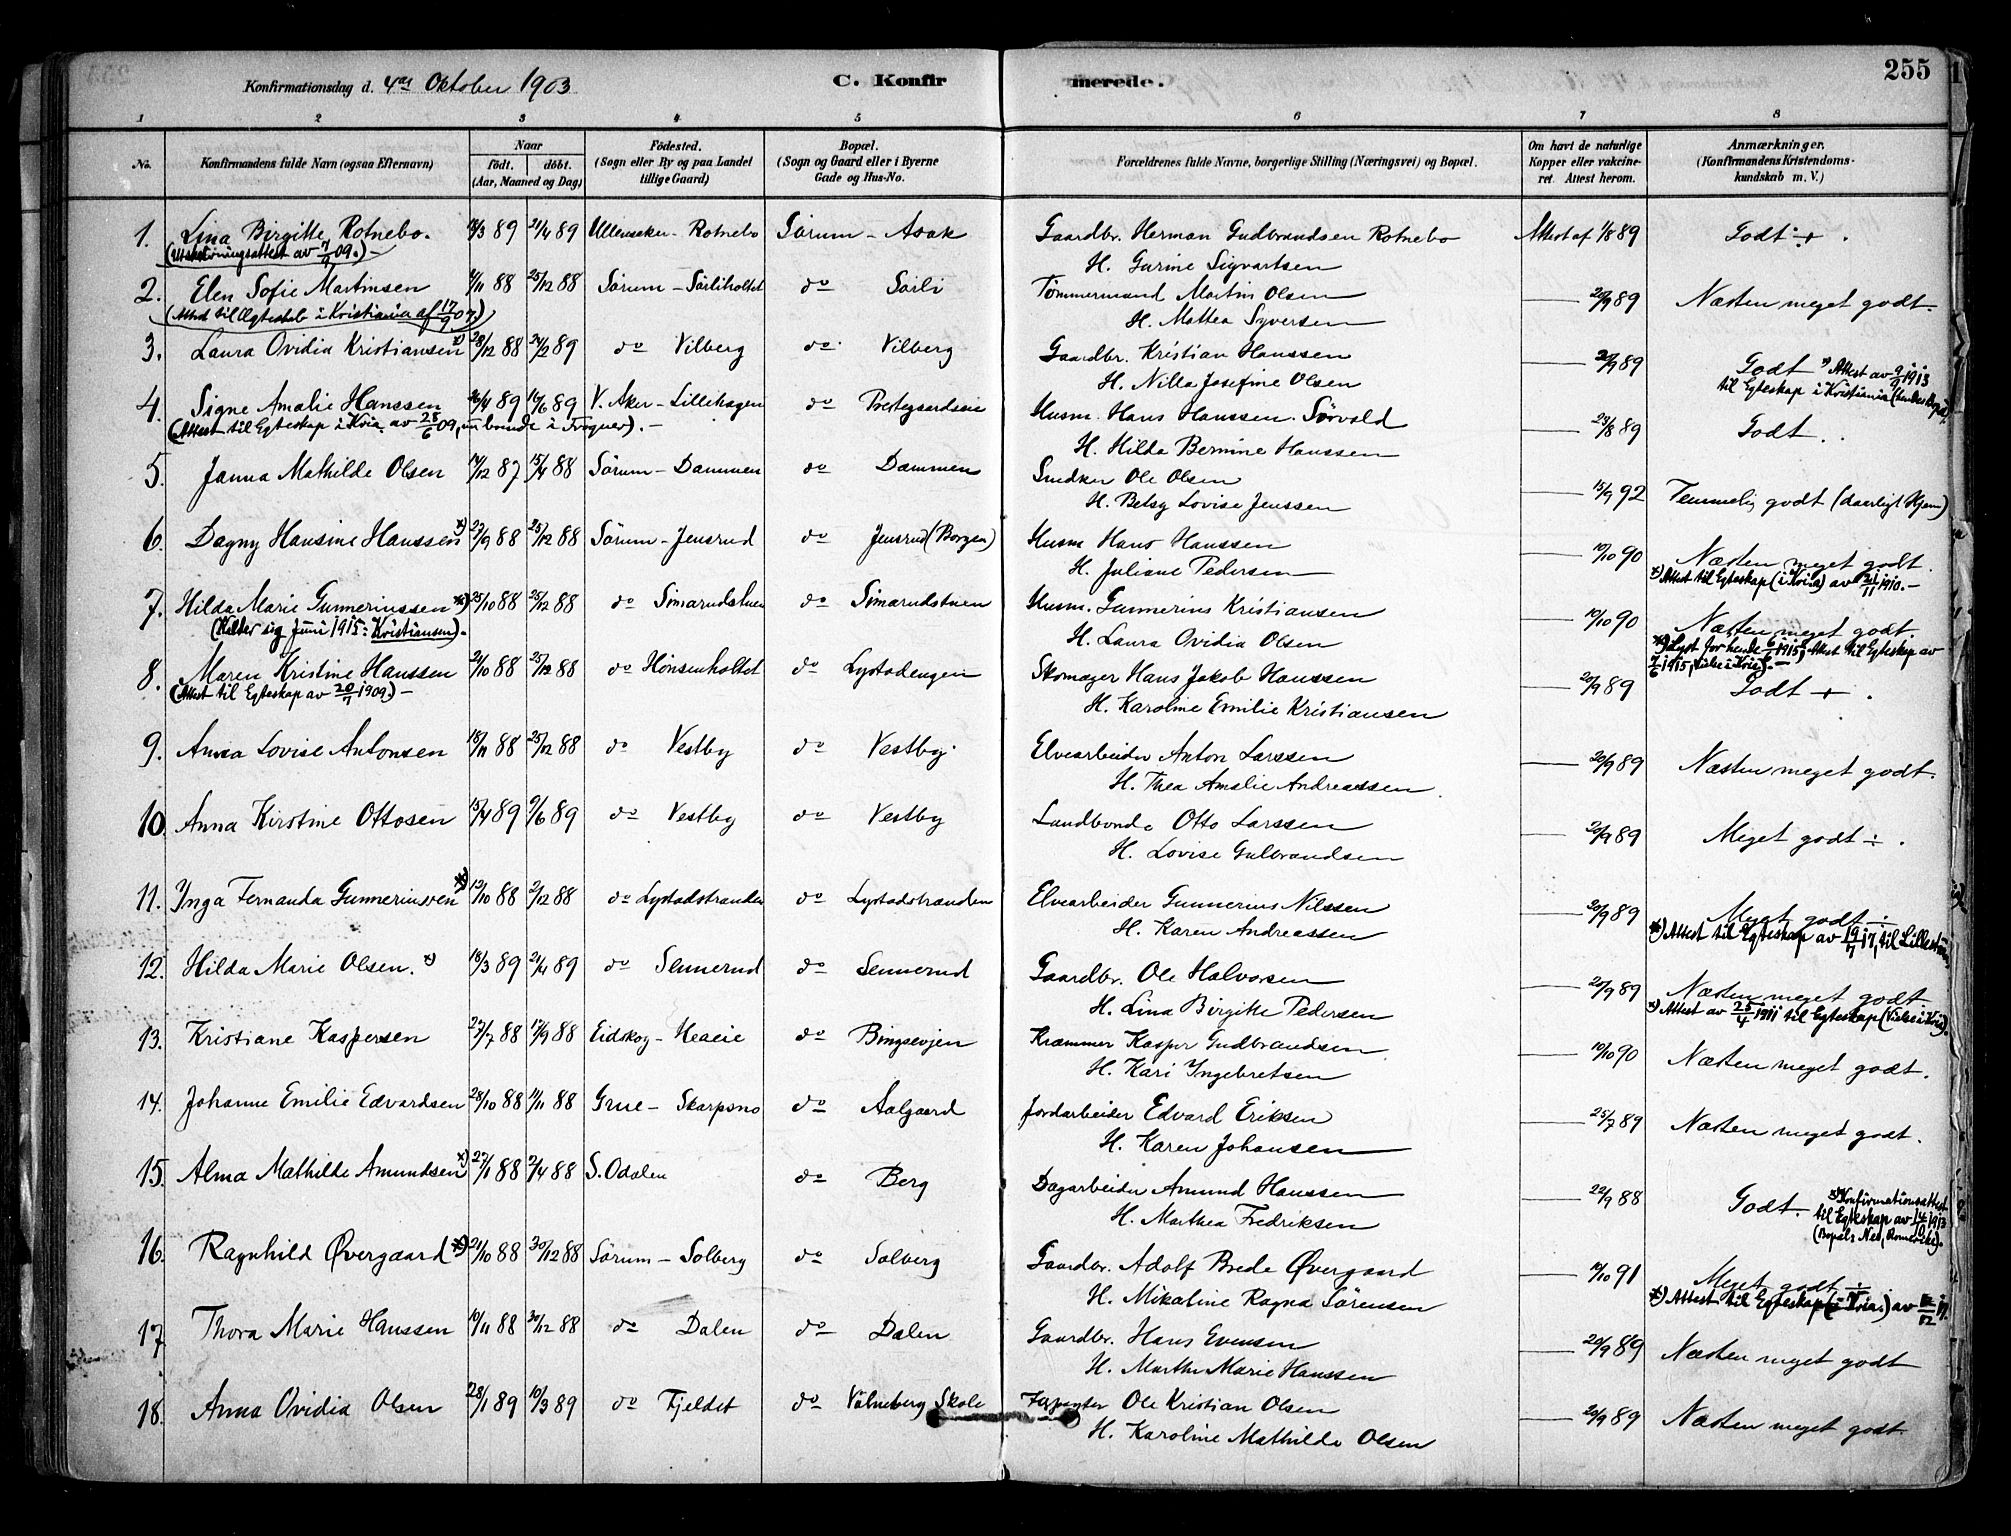 255
Konfirmationsdag d. 4de Oktober 1903
C. Konfirmerede.
1 2 3 4 5 6 7 8
No.
Konfirmandens fulde Navn (ogsaa Efternavn)
Naar
født. døbt.
(Aar, Maaned og Dag)
Födested.
(Sogn eller By og paa Landet
tillige Gaard)
Bopæl.
(Sogn og Gaard eller i Byerne
Gade og Hus-No.
Forældrenes fulde Navne, borgerlige Stilling (Næringsvei) og Bopæl.
Om havt de naturlige
Kopper eller vakcine-
ret. Attest herom.
Anmærkninger.
(Konfirmandens Kristendoms-
kundskab m. V.)
1. Lina Birgitte Rotnebo. 89 21/4 89 Ullensaker - Rotnebo Sørum - Asak Gaardbr. Herman Gudbrandsen Rotnebo Attest af 1/8 89 Godt ÷ .
(Utskrivningsattest av 7/9 09.) -
H. Gurine Sigvartsen
2. Elen Sofie Martinsen 88 25/12 88 Sørum - Sørliholtet do Sørli Tømmermand Martin Olsen 20/9 89 Næsten meget godt.
(Attest til Egteskab i Kristiania af 17/9 07)
H. Mathea Syversen
3. Laura Ovidia Kristiansen x) 28/12 88 24/2 89 do Vilberg do Vilberg Gaardbr. Kristian Hanssen 20/9 89 Godt x) Attest av 9/9 1913
H. Nilla Josefine Olsen
til Egteskap i Kristiania
4. Signe Amalie Hanssen 89 89 V. Aker - Lillehagen do Prestegaardseie Husm. Hans Hanssen Sörvold 23/8 89 Godt . .
(Attest til Egteskap i Kria. av 25/6 09, m. bonde i Frogner). -
H. Hilda Bernine Hanssen
5. Janna Mathilde Olsen 14/12 87 15/4 88 Sørum - Dammen do Dammen Snedker Ole Olsen 15/9 92 Temmelig godt (daarligt Hjem)
H. Betsy Lovise Jenssen
6. Dagny Hansine Hanssen x) 22/9 88 25/12 88 Sørum - Jensrud do Jensrud (Borgen) Husm Hans Hanssen 10/10 90 Næsten meget godt.
H. Juliane Pedersen
x) Attest til Egteskap (i Kria) av 21/11 1910. -
7. Hilda Marie Gunneriussen x) 25/10 88 25/12 88 do Simarudstuen do Simarudstuen Husm. Gunnerius Kristiansen 10/10 90 Næsten meget godt.
(Kalder sig Juni 1915: Kristiansen).
H. Laura Ovidia Olsen
x) Lyst for hende 6/6 1915, Attest til Egteskap av
8. Maren Kristine Hanssen 21/10 88 25/12 88 do Hönsenholtet do Lystadengen Skomager Hans Jakob Hanssen 20/9 89 Godt ÷ .
7/6 1915, -
(Attest til Egteskap av 20/9 1909.) -
H. Karoline Emilie Kristiansen
9. Anna Lovise Antonsen 18/11 88 25/12 88 do Vestby do Vestby. Elvearbeider Anton Larssen 20/9 89 Næsten meget godt.
H. Thea Amalie Andreassen
10. Anna Kirstine Ottosen 15/4 89 9/6 89 do Vestby do Vestby Landbonde Otto Larssen 20/9 89 Meget godt ÷ .
H. Lovise Gulbrandsen
11. Inga Fernanda Gunneriussen x) 12/10 88 2/12 88 do Lystadstranden do Lystadstranden Elvearbeider Gunnerius Nilssen 20/9 89 Meget godt ÷
H. Karen Andreassen
x) Attest til Egteskap av 19/11 17, til Lillestrøm,
12. Hilda Marie Olsen. x) 18/3 89 21/4 89 do Sennerud do Sennerud Gaardbr. Ole Halvorsen 20/9 89 Næsten meget godt
H. Lina Birgitte Pedersen
x) Attest av 25/4 1911 til Egteskap (Vielse i Kria).
13. Kristiane Kaspersen 27/7 88 88 Eidskog - Heaeie do Bingsevjen Kræmmer Kasper Gudbrandsen 10/10 90 Næsten meget godt.
H. Kari Ingebretsen
14. Johanne Emilie Edvardsen 28/10 88 88 Grue - Skarpsno do Aalgaard Jordarbeider Edvard Eriksen 25/7 89 Næsten meget godt.
H. Karen Johansen
15. Alma Mathilde Amundsen x) 27/1 88 2/4 88 S. Odalen do Berg Dagarbeider Amund Hanssen 22/9 88 Godt. x) Konfirmationsattest
til Egteskap av 14/9 1913
H. Marthea Fredriksen
(Bopæl: Nes, Romerike).
16. Ragnhild Øvergaard x) 21/10 88 30/12 88 Sørum - Solberg do Solberg Gaardbr. Adolf Brede Øvergaard 91 Meget godt ÷
H. Mikaline Ragna Sörensen
x) Attest til Egteskap (i Kria.) av
17. Thora Marie Hanssen 19/11 88 30/12 88 do Dalen do Dalen Gaardbr. Hans Evensen 20/9 89 Næsten meget godt
H. Marthe Marie Hanssen
18. Anna Ovidia Olsen 28/1 89 10/3 89 do Fjeldet do Valneberg Skole Ole Kristian Olsen 20/9 89 Næsten meget godt.
H. Karoline Mathilde Olsen